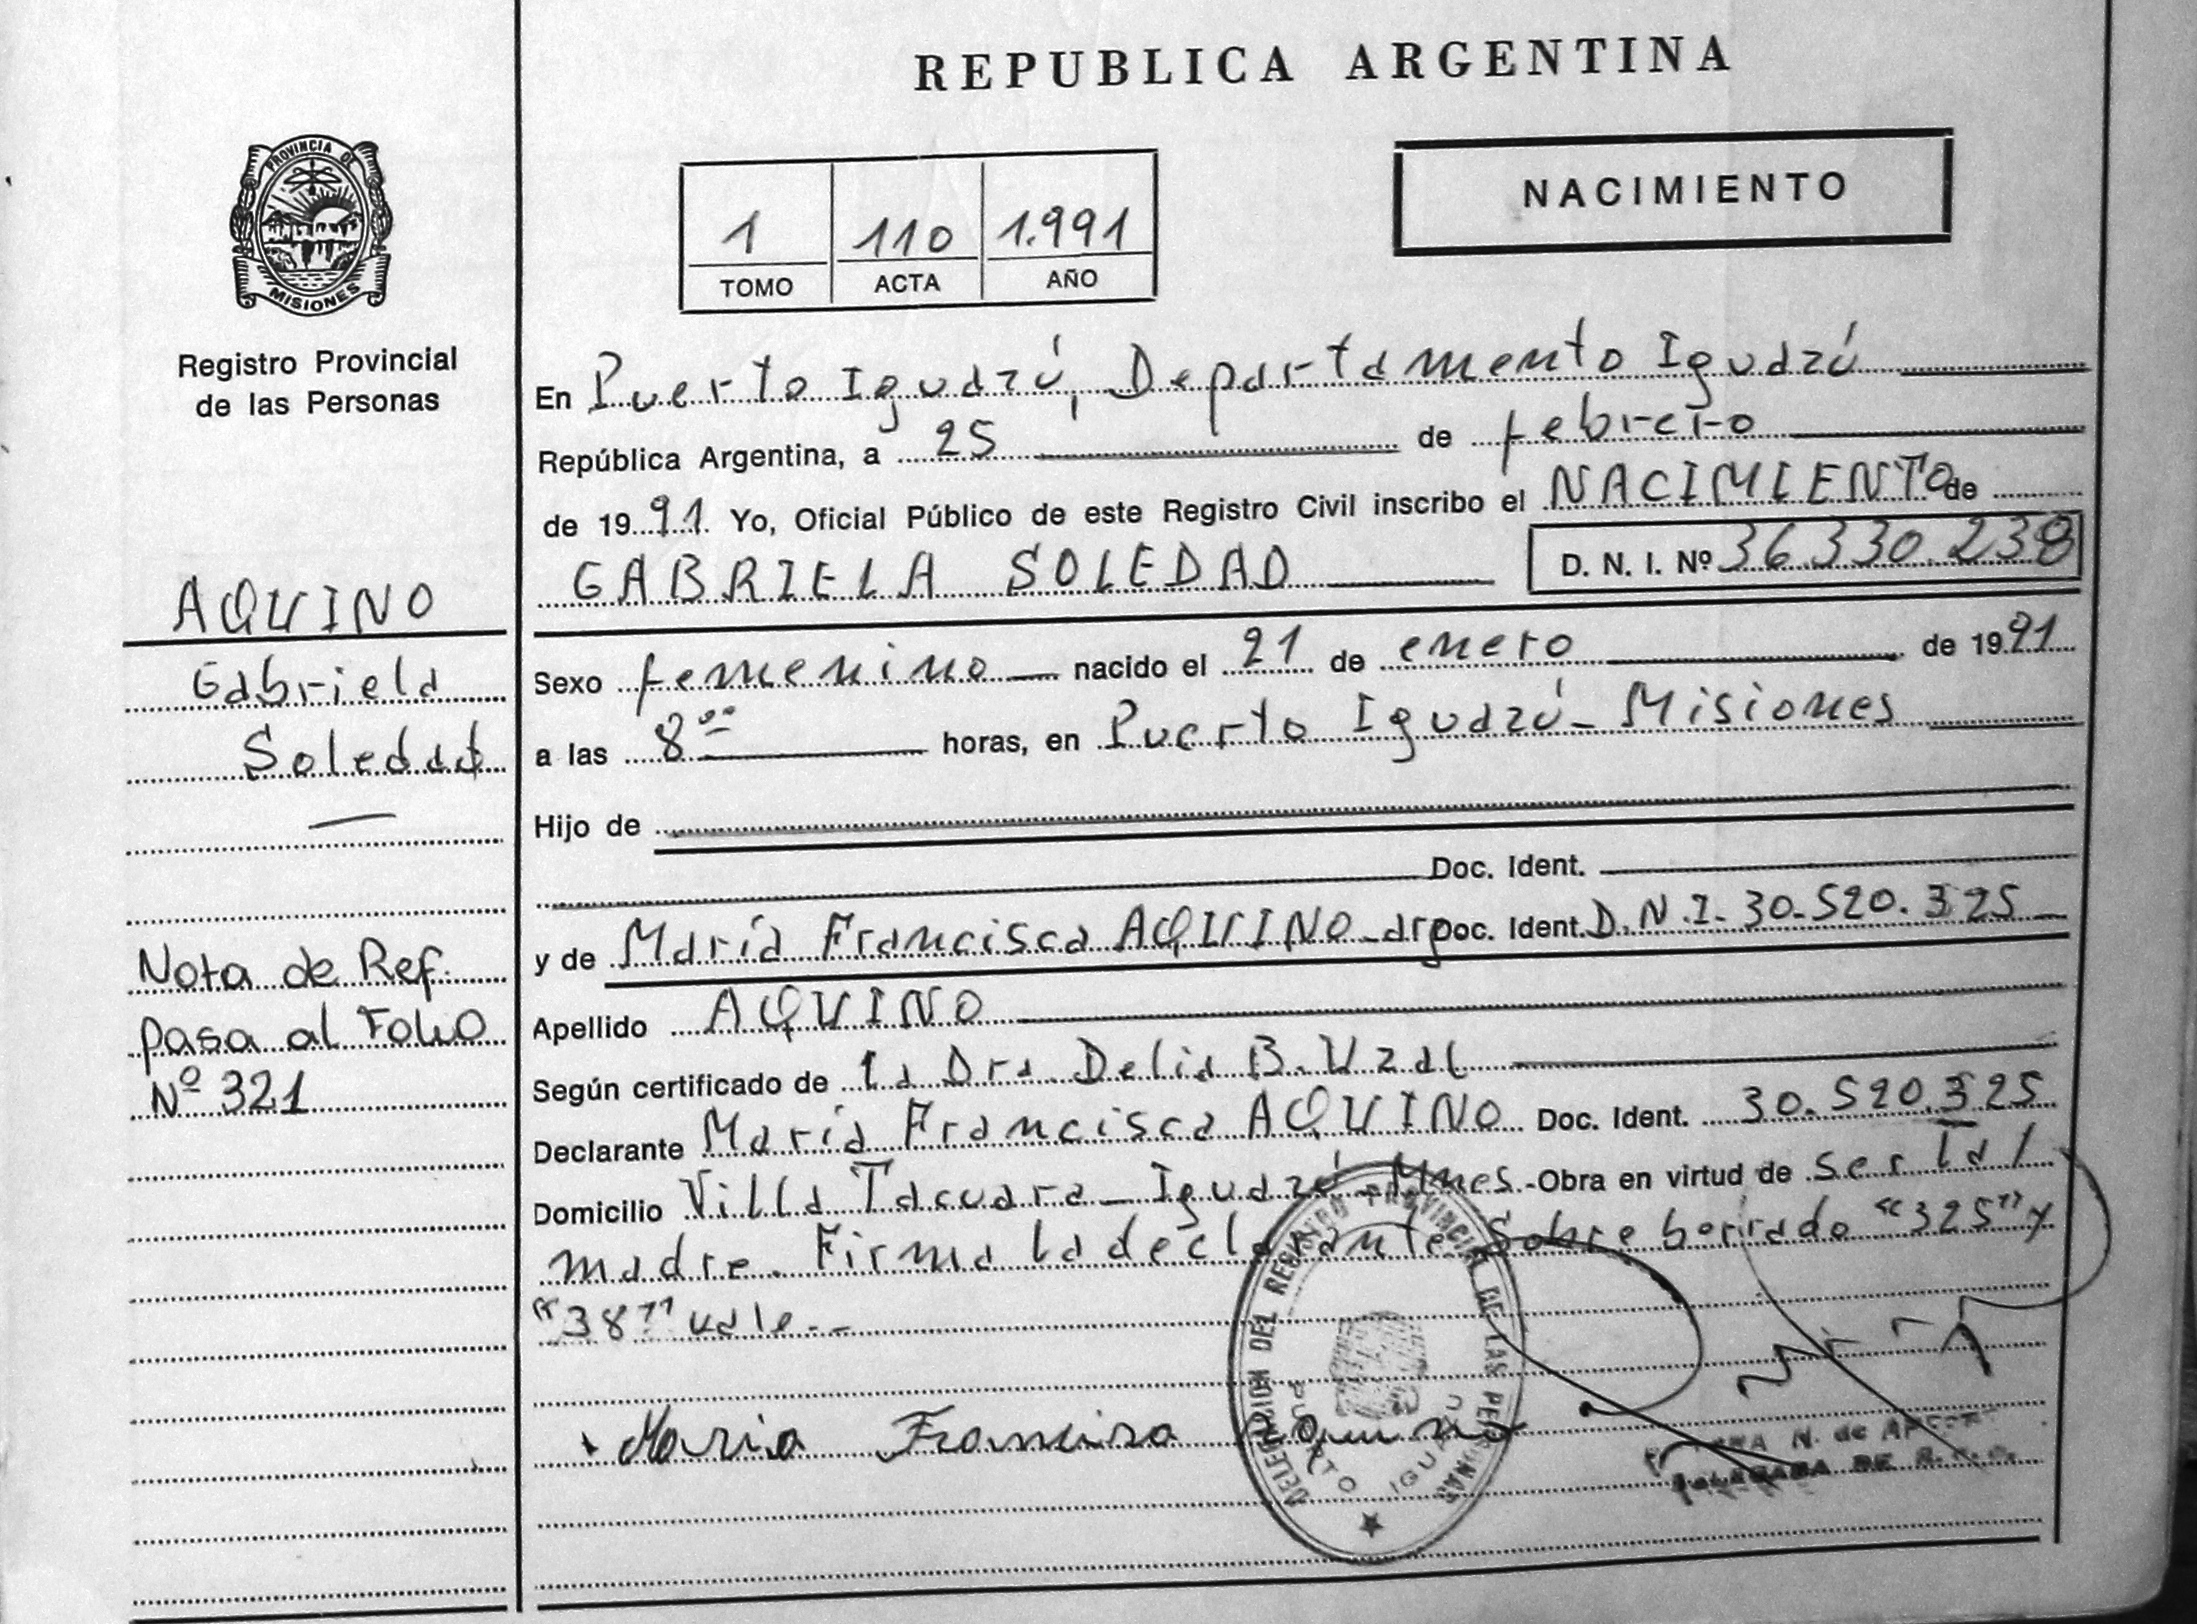 REPUBLICA ARGENTINA
PROVINCIA DE
MISIONES
Registro Provincial
de las Personas
1 110 1.991
TOMO ACTA AÑO
NACIMIENTO
En Puerto Iguazú, Departamento Iguazú
República Argentina, a 25 de febrero
de 1991 Yo, Oficial Público de este Registro Civil inscribo el NACIMIENTO de
GABRIELA SOLEDAD D. N. I. Nº 36.330.238
AQUINO
Gabriela
Soledad
Nota de Ref.
pasa al Folio
Nº 321
Sexo femenino nacido el 21 de enero de 1991
a las 8 ºº horas, en Puerto Iguazú - Misiones
Hijo de
Doc. Ident.
y de María Francisca AQUINO - arg Doc. Ident. D.N.I. 30.520.325
Apellido AQUINO
Según certificado de la Dra. Delia B. Uzal
Declarante María Francisca AQUINO Doc. Ident. 30.520.325
Domicilio Villa Tacuara - Iguazú - Mnes. - Obra en virtud de ser la /
madre. Firma la declarante. Sobre borrado "325" y
"38" vale.-
Maria Francisca Aquino
DELEGACION DEL REGISTRO PROVINCIAL DE LAS PERSONAS
PUERTO IGUAZU
N. de
DELEGADA DE R.